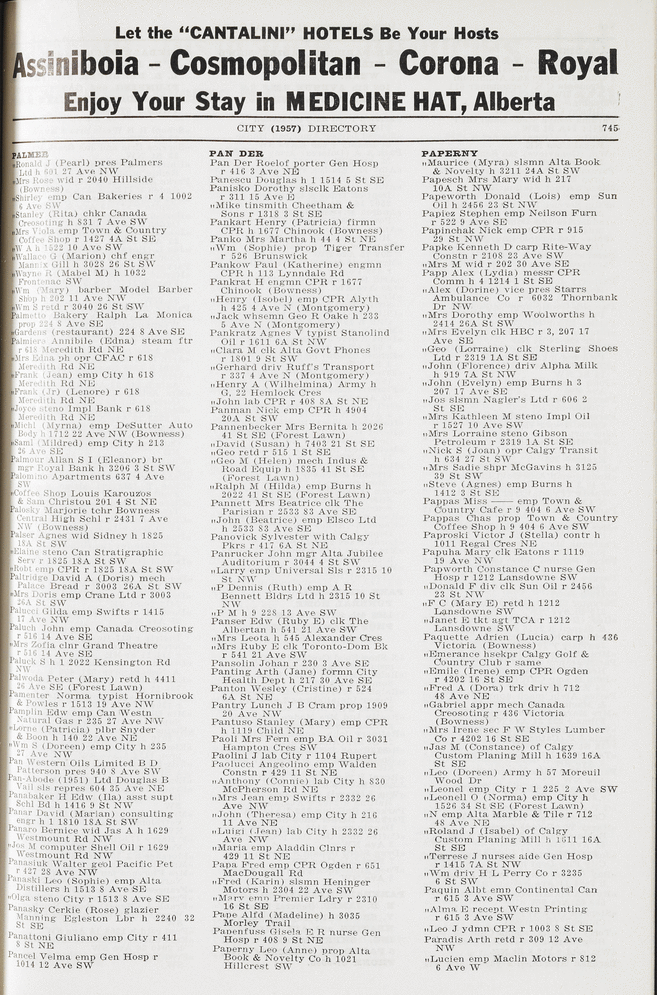 Let the "CANTALINI" HOTELS Be Your Hosts
Assiniboia - Cosmopolitan - Corona - Royal
Enjoy Your Stay in MEDICINE HAT, Alberta
CITY (1957) DIRECTORY 745
PALMER
"Ronald J (Pearl) pres Palmers
Ltd h 601 27 Ave NW
"Mrs Rose wid r 2040 Hillside
(Bowness)
"Shirley emp Can Bakeries r 4 1002
6 Ave SW
"Stanley (Rita) chkr Canada
Creosoting h 831 7 Ave SW
"Mrs Viola emp Town & Country
Coffee Shop r 1427 4A St SE
"W A h 1522 10 Ave SW
"Wallace G (Marion) chf engr
Mannix Gill h 3028 26 St SW
"Wayne R (Mabel M) h 1032
Frontenac SW
"Wm (Mary) barber Model Barber
Shop h 202 11 Ave NW
"Wm S retd r 3040 26 St SW
Palmetto Bakery Ralph La Monica
prop 224 8 Ave SE
"Gardens (restaurant) 224 8 Ave SE
Palmiere Annibile (Edna) steam ftr
r 618 Meredith Rd NE
"Mrs Edna ph opr CFAC r 618
Meredith Rd NE
"Frank (Jean) emp City h 618
Meredith Rd NE
"Frank (Jr) (Lenore) r 618
Meredith Rd NE
"Joyce steno Impl Bank r 618
Meredith Rd NE
"Michl (Myrna) emp DeSutter Auto
Body h 1712 22 Ave NW (Bowness)
"Saml (Mildred) emp City h 213
26 Ave SE
Palmour Allan S I (Eleanor) br
mgr Royal Bank h 3206 3 St SW
Palomino Apartments 637 4 Ave
SW
"Coffee Shop Louis Karouzos
& Sam Christou 201 4 St NE
Palosky Marjorie tchr Bowness
Central High Schl r 2431 7 Ave
NW (Bowness)
Palser Agnes wid Sidney h 1825
18A St SW
"Elaine steno Can Stratigraphic
Serv r 1825 18A St SW
"Robt emp CPR r 1825 18A St SW
Paltridge David A (Doris) mech
Palace Bread r 3003 26A St SW
"Mrs Doris emp Crane Ltd r 3003
26A St SW
Palucci Gilda emp Swifts r 1415
17 Ave NW
Paluch John emp Canada Creosoting
r 516 14 Ave SE
"Mrs Zofia clnr Grand Theatre
r 516 14 Ave SE
Paluck S h 1 2022 Kensington Rd
NW
Palwoda Peter (Mary) retd h 4411
26 Ave SE (Forest Lawn)
Pamenter Norma typist Hornibrook
& Powles r 1513 19 Ave NW
Pamplin Edw emp Can Westn
Natural Gas r 235 27 Ave NW
"Lorne (Patricia) plbr Snyder
& Boon h 140 22 Ave NE
"Wm S (Doreen) emp City h 235
27 Ave NW
Pan Western Oils Limited B D
Patterson pres 940 8 Ave SW
Pan-Abode (1951) Ltd Douglas B
Vail sls repres 604 35 Ave NE
Panabaker H Edw (Ila) asst supt
Schl Bd h 1416 9 St NW
Panar David (Marian) consulting
engr h 1 1810 18A St SW
Panaro Bernice wid Jas A h 1629
Westmount Rd NW
"Jos M computer Shell Oil r 1629
Westmount Rd NW
Panasiuk Walter geol Pacific Pet
r 427 28 Ave NW
Panaski Leo (Sophie) emp Alta
Distillers h 1513 8 Ave SE
"Olga steno City r 1513 8 Ave SE
Panasky Cerkie (Rose) glazier
Manning Egleston Lbr h 2240 32
St SE
Panattoni Giuliano emp City r 411
8 St NE
Pancel Velma emp Gen Hosp r
1014 12 Ave SW
PAN DER
Pan Der Roelof porter Gen Hosp
r 416 3 Ave NE
Panescu Douglas h 1 1514 5 St SE
Panisko Dorothy slsclk Eatons
r 311 15 Ave E
"Mike tinsmith Cheetham &
Sons r 1318 3 St SE
Pankart Henry (Patricia) firmn
CPR h 1677 Chinook (Bowness)
Panko Mrs Martha h 44 4 St NE
"Wm (Sophie) prop Tiger Transfer
r 526 Brunswick
Pankow Paul (Katherine) engmn
CPR h 113 Lynndale Rd
Pankrat H engmn CPR r 1677
Chinook (Bowness)
"Henry (Isobel) emp CPR Alyth
h 425 4 Ave N (Montgomery)
"Jack whsemn Geo R Oake h 233
5 Ave N (Montgomery)
Pankratz Agnes V typist Stanolind
Oil r 1611 6A St NW
"Clara M clk Alta Govt Phones
r 1801 9 St SW
"Gerhard driv Ruff's Transport
r 337 4 Ave N (Montgomery)
"Henry A (Wilhelmina) Army h
G. 22 Hemlock Cres
"John lab CPR r 408 8A St NE
Panman Nick emp CPR h 4904
20A St SW
Pannenbecker Mrs Bernita h 2026
41 St SE (Forest Lawn)
"David (Susan) h 7403 21 St SE
"Geo retd r 515 1 St SE
"Geo M (Helen) mech Indus &
Road Equip h 1835 41 St SE
(Forest Lawn)
"Ralph M (Hilda) emp Burns h
2022 41 St SE (Forest Lawn)
Pannett Mrs Beatrice clk The
Parisian r 2533 83 Ave SE
"John (Beatrice) emp Elsco Ltd
h 2533 83 Ave SE
Panovich Sylvester with Calgy
Pkrs r 417 6A St NE
Panrucker John mgr Alta Jubilee
Auditorium r 3044 4 St SW
"Larry emp Universal Sls r 2315 10
St NW
"P Dennis (Ruth) emp A R
Bennett Bldgs Ltd h 2315 10 St
NW
"P M h 9 228 13 Ave SW
Panser Edw (Ruby E) clk The
Albertan h 541 21 Ave SW
"Mrs Leota h 545 Alexander Cres
"Mrs Ruby E clk Toronto-Dom Bk
r 541 21 Ave SW
Pansolin Johan r 230 3 Ave SE
Panting Arth (Jane) formn City
Health Dept h 217 30 Ave SE
Panton Wesley (Cristine) r 524
6A St NE
Pantry Lunch J B Cram prop 1909
20 Ave NW
Pantuso Stanley (Mary) emp CPR
h 1119 Child NE
Paoli Mrs Fern emp BA Oil r 3031
Hampton Cres SW
Paolini J lab City r 1104 Rupert
Paolucci Angeolino emp Walden
Constn r 429 11 St NE
"Anthony (Connie) lab City h 830
McPherson Rd NE
"Mrs Jean emp Swifts r 2332 26
Ave NW
"John (Theresa) emp City h 216
11 Ave NE
"Luigi (Jean) lab City h 2332 26
Ave NW
"Maria emp Aladdin Clnrs r
429 11 St NE
Papa Fred emp CPR Ogden r 651
MacDougall Rd
"Fred (Karin) slsmn Heninger
Motors h 2304 22 Ave SW
"Mary emp Premier Ldry r 2310
16 St SE
Pape Alfd (Madeline) h 3035
Morley Trail
Papenfuss Gisela E R nurse Gen
Hosp r 408 9 St NE
Paperny Leo (Anne) prop Alta
Book & Novelty Co h 1021
Hillcrest SW
PAPERNY
"Maurice (Myra) slsmn Alta Book
& Novelty h 3211 24A St SW
Papesch Mrs Mary wid h 217
10A St NW
Papeworth Donald (Lois) emp Sun
Oil h 2456 23 St NW
Papiez Stephen emp Neilson Furn
r 522 9 Ave SE
Papinchak Nick emp CPR r 915
29 St NW
Papke Kenneth D carp Rite-Way
Constn r 2108 23 Ave SW
"Mrs M wid r 202 30 Ave SE
Papp Alex (Lydia) messr CPR
Comm h 4 1214 1 St SE
"Alex (Dorine) vice pres Starrs
Ambulance Co r 6032 Thornbank
Dr NW
"Mrs Dorothy emp Woolworths h
2414 26A St SW
"Mrs Evelyn clk HBC r 3, 207 17
Ave SE
"Geo (Lorraine) clk Sterling Shoes
Ltd r 2319 1A St SE
"John (Florence) driv Alpha Milk
h 919 7A St NW
"John (Evelyn) emp Burns h 3
207 17 Ave SE
"Jos slsmn Nagler's Ltd r 606 2
St SE
"Mrs Kathleen M steno Impl Oil
r 1527 10 Ave SW
"Mrs Lorraine steno Gibson
Petroleum r 2319 1A St SE
"Nick S (Joan) opr Calgy Transit
h 634 27 St SW
"Mrs Sadie shpr McGavins h 3125
39 St SW
"Steve (Agnes) emp Burns h
1412 3 St SE
Pappas Miss —— emp Town &
Country Cafe r 9 404 6 Ave SW
Pappas Chas prop Town & Country
Coffee Shop h 9 404 6 Ave SW
Paproski Victor J (Stella) contr h
1011 Regal Cres NE
Papuha Mary clk Eatons r 1119
19 Ave NW
Papworth Constance C nurse Gen
Hosp r 1212 Lansdowne SW
"Donald F div clk Sun Oil r 2456
23 St NW
"F C (Mary E) retd h 1212
Lansdowne SW
"Janet E tkt agt TCA r 1212
Lansdowne SW
Paquette Adrien (Lucia) carp h 436
Victoria (Bowness)
"Emerance hsekpr Calgy Golf &
Country Club r same
"Emile (Irene) emp CPR Ogden
r 4202 16 St SE
"Fred A (Dora) trk driv h 712
48 Ave NE
"Gabriel appr mech Canada
Creosoting r 436 Victoria
(Bowness)
"Mrs Irene sec F W Styles Lumber
Co r 4202 16 St SE
"Jas M (Constance) of Calgy
Custom Planing Mill h 1639 16A
St SE
"Leo (Doreen) Army h 57 Moreuil
Wood Dr
"Leonel emp City r 1 225 2 Ave SW
"Leonell O (Norma) emp City h
1526 34 St SE (Forest Lawn)
"N emp Alta Marble & Tile r 712
48 Ave NE
"Roland J (Isabel) of Calgy
Custom Planing Mill h 1611 16A
St SE
"Terrese J nurses aide Gen Hosp
r 1415 7A St NW
"Wm driv H L Perry Co r 3235
6 St SW
Paquin Albt emp Continental Can
r 615 3 Ave SW
"Alma E recept Westn Printing
r 615 3 Ave SW
"Leo J ydmn CPR r 1003 8 St SE
Paradis Arth retd r 309 12 Ave
NW
"Lucien emp Maclin Motors r 812
6 Ave W